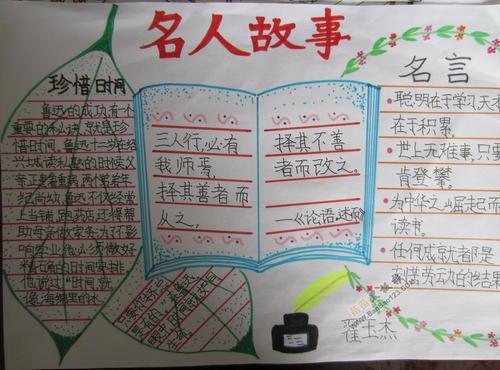 名人故事
珍惜时间
鲁迅的成功,有个
重要的秘诀,就是珍
惜时间。鲁迅十二岁在
绍兴城读私塾的时候,父
亲正患着重病,两个弟弟年
纪尚幼,鲁迅不仅经常
上当铺,跑药店,还得帮
助母亲做家务;为了不影
响学业,他必须做好
精确的时间安排。
时间,就
像海绵里的水
三人行,必有
我师焉,
择其善者而
从之,
择其不善
者而改之。
—《论语·述而》
名言
聪明在于学习,天才
在于积累。
世上无难事,只要
肯登攀。
为中华之崛起而
读书。
任何成就都是
刻苦劳动的结果
翟玉杰